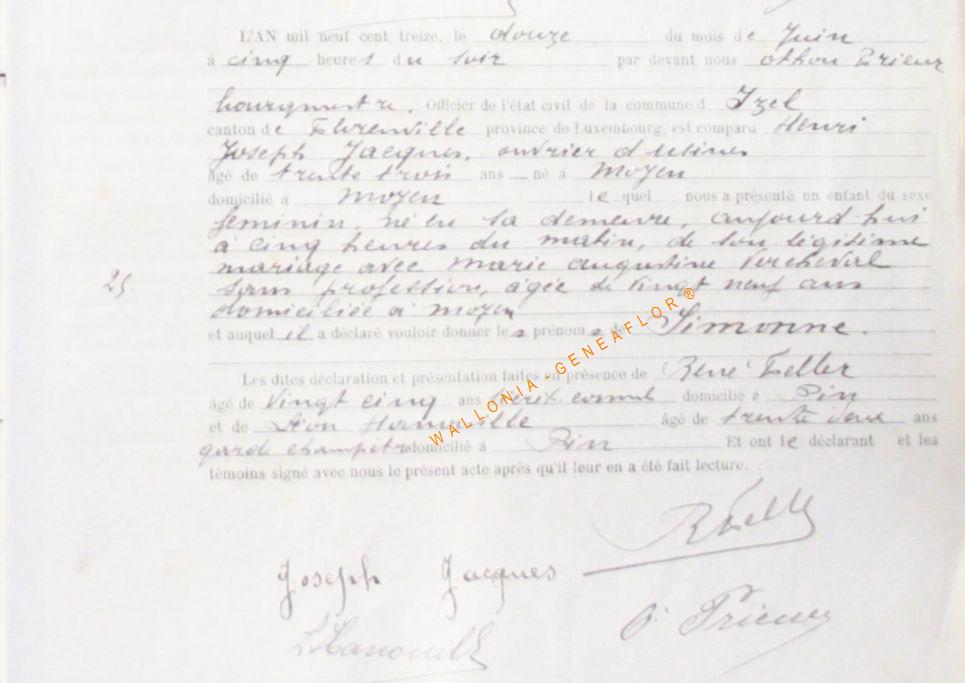 L'AN mil neuf cent treize, le douze du mois de Juin
à cinq heures du soir par devant nous othon Prieur
bourgmestre, Officier de l'état civil de la commune d Izel
canton de Florenville province de Luxembourg, est comparu Henri
Joseph Jacques, ouvrier d'usines
âgé de trente trois ans né à Moyen
domicilié à Moyen lequel nous a présenté un enfant du sexe
féminin, né en sa demeure, aujourd'hui
à cinq heures du matin, de son légitime
mariage avec Marie Augustine Vercheval
sans profession, agée de vingt neuf ans
25.
domiciliée à Moyen
et auquel il a déclaré vouloir donner les prénoms de Simonne.
Les dites déclaration et présentation faites en présence de René Feller
âgé de Vingt cinq ans domicilié à Pin
et de Léon âgé de trente deux ans
garde champêtre domicilié à Pin Et ont le déclarant et les
témoins signé avec nous le présent acte après qu'il leur en a été fait lecture.
WALLONIA - GENEAFLOR ®
Joseph Jacques
O Prieur